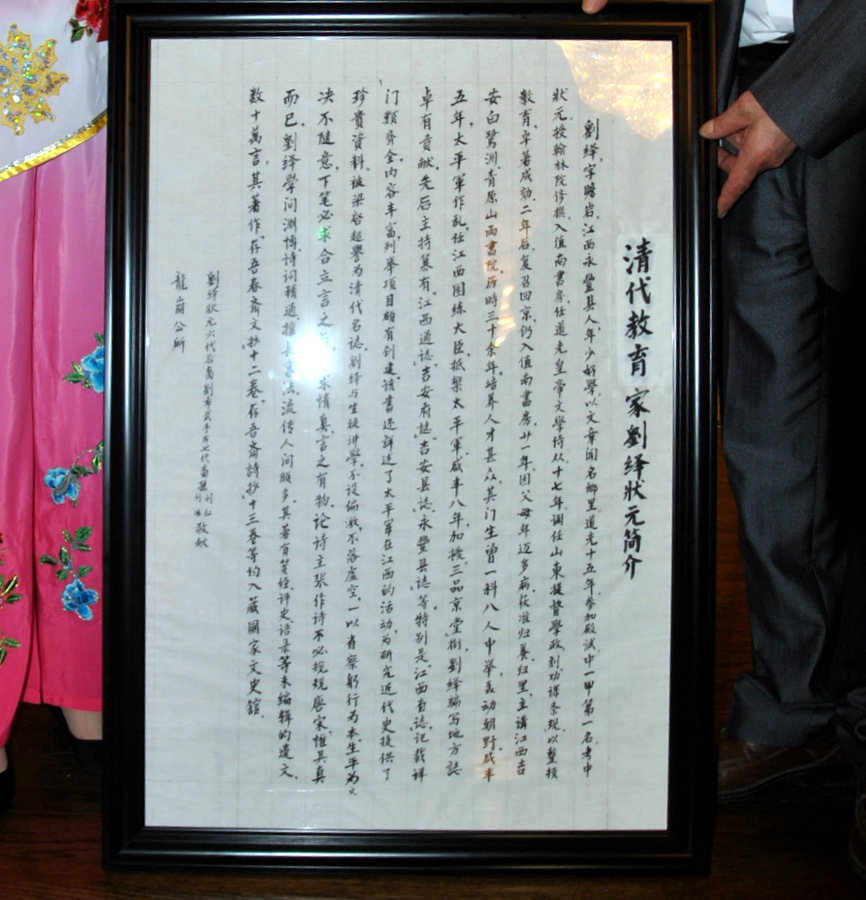 清代教育家劉绎狀元简介
劉绎字瞻岩，江西永豐县人年少好學以文章闻名鄉里道光十五年参加殿試中一甲第一名考中
狀元授翰林院修撰入值南書房任道光皇帝文學侍从十七年调任山東提督學政刻功课条规以整顿
教育卓著成効二年后复召回京仍入值南書房廿一年因父母年迈多病获准归养归里主講江西吉
安白鷺洲青原山两書院历時三十余年培养人才甚众其门生曾一科八人中举轰动朝野咸丰
五年太平軍作乱任江西团練大臣抵禦太平軍咸丰八年加授三品京堂衔劉绎编写地方誌
卓有贡献先后主持纂有江西通誌吉安府誌吉安县誌永豐县誌等特别是江西省誌记载详
门類齐全内容丰富列举項目颇有创建該書还詳述了太平軍在江西的活动为研究近代史提供了
珍贵資料被梁啓超譽为清代名誌劉绎与生徒讲學不设偏激不落虚空一以省察躬行为本生平为文
决不隨意下笔必求合立言之 求情真言之有物论诗主張作诗不必规规唐宋惟其真
而已劉绎學问渊博诗词精通擅长書法流传人间颇多其著有笺经评史语录等未编辑的遗文
数十萬言其著作存吾春斋文抄十二卷存吾斋詩抄十三卷等均入藏國家文史舘
劉绎狀元六代后裔劉 七代裔 敬献
龍崗公所